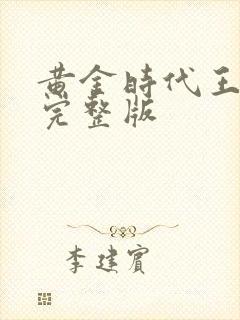 黄金時代王
完整版
李建賓